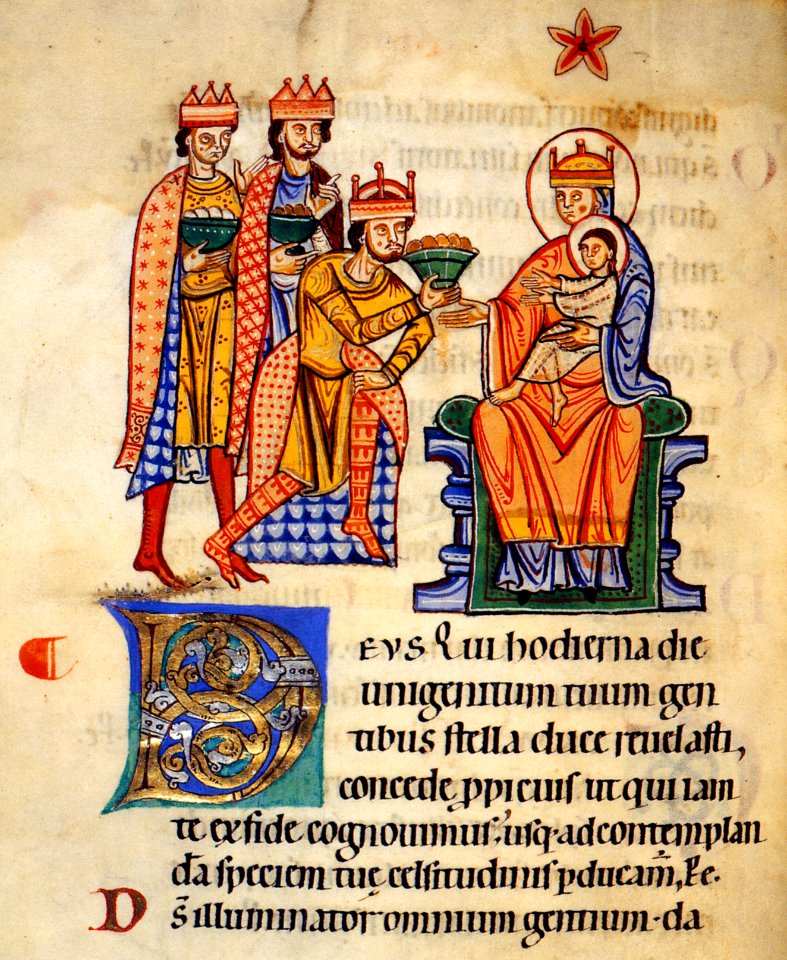 DEUS Qui hodierna die
unigenitum tuum gen
tibus stella duce reuelasti,
concede ꝓpicius ut qui iam
te ex fide cognouimus, usq; ad contemplan
dā speciem tuę celsitudinis ꝑducam̄, Ꝑe.
D s̄ illuminator omnium gentium · da